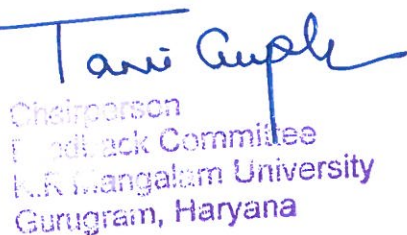 Tanvi Gupta
Chairperson
Feedback Committee
K.R Mangalam University
Gurugram, Haryana